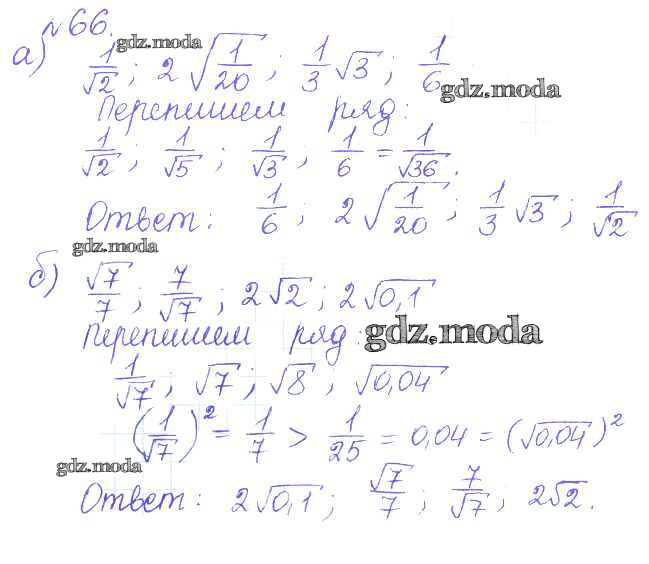 №66.
а) 1/√2; 2√(1/20); 1/3 √3; 1/6
gdz.moda
gdz.moda
Перепишем ряд:
1/√2; 1/√5; 1/√3; 1/6 = 1/√36.
Ответ: 1/6; 2√(1/20); 1/3 √3; 1/√2
gdz.moda
б) √7/7; 7/√7; 2√2; 2√0,1
Перепишем ряд:
gdz.moda
1/√7; √7; √8, √0,04
(1/√7)² = 1/7 > 1/25 = 0,04 = (√0,04)²
gdz.moda
Ответ: 2√0,1; √7/7; 7/√7; 2√2.